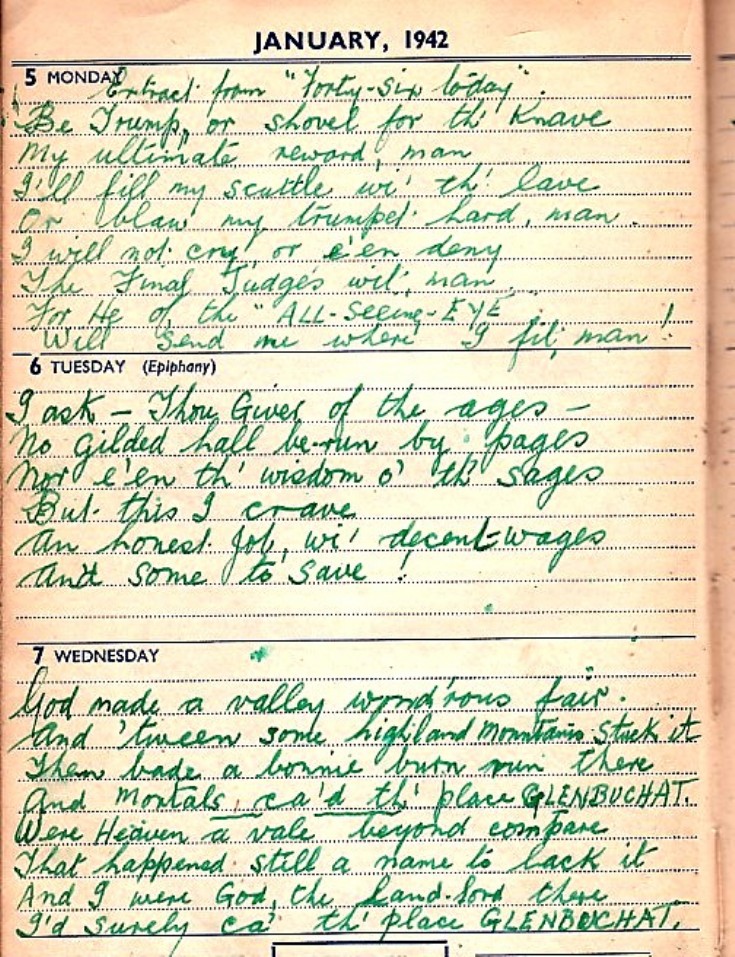 JANUARY, 1942
5 MONDAY
Extract from "Forty-six today".
Be Trump, or shovel for th' Knave
My ultimate reward, man
I'll fill my scuttle wi' th' lave
Or blaw my trumpet hard, man.
I will not cry, or e'en deny
The Final Judges wit, man.
For He of the "ALL-Seeing-EYE
Will send me where I fit, man!
6 TUESDAY (Epiphany)
I ask — Thou Giver of the ages —
No gilded hall be-run by pages
Nor e'en th' wisdom o' th' sages
But this I crave
An honest job, wi' decent-wages
And some to save!
7 WEDNESDAY
God made a valley wond'rous fair.
And 'tween some highland Mountains stuck it
Then bade a bonnie burn run there
And Mortals, ca'd th' place GLENBUCHAT.
Were Heaven a vale beyond compare
That happened still a name to lack it
And I were God, the Land-Lord there
I'd surely ca' th' place GLENBUCHAT.